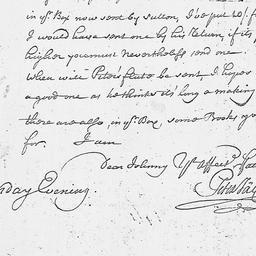 in yr. Box now sent by Sutton, I've put 40/. f
I would have sent one by his Return, if its
higher you must Nevertheless send one.
When will Peter's flute be sent, I hope
a good one as he thinks its long a making
there are also, in yr. Box, some Books
for. I am
Dear Johnny Yr. affect.
day Evening.